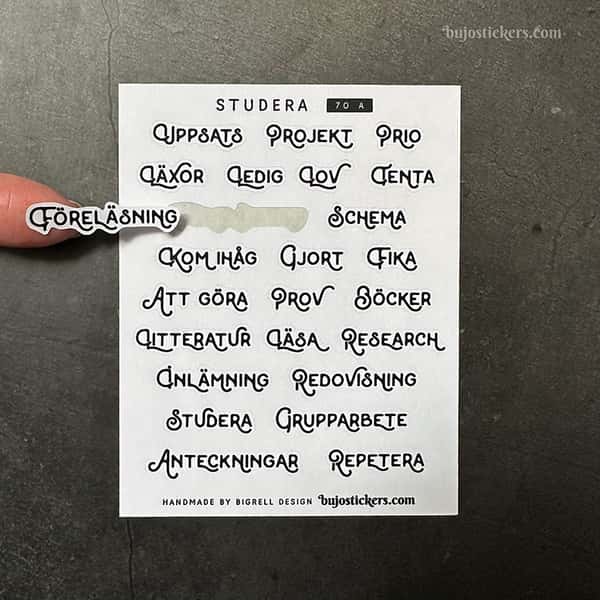 bujostickers.com
STUDERA 70 A
UPPSATS PROJEKT PRIO
LÄXOR LEDIG LOV TENTA
FÖRELÄSNING SCHEMA
KOM IHÅG GJORT FIKA
ATT GÖRA PROV BÖCKER
LITTERATUR LÄSA RESEARCH
INLÄMNING REDOVISNING
STUDERA GRUPPARBETE
ANTECKNINGAR REPETERA
HANDMADE BY BIGRELL DESIGN bujostickers.com